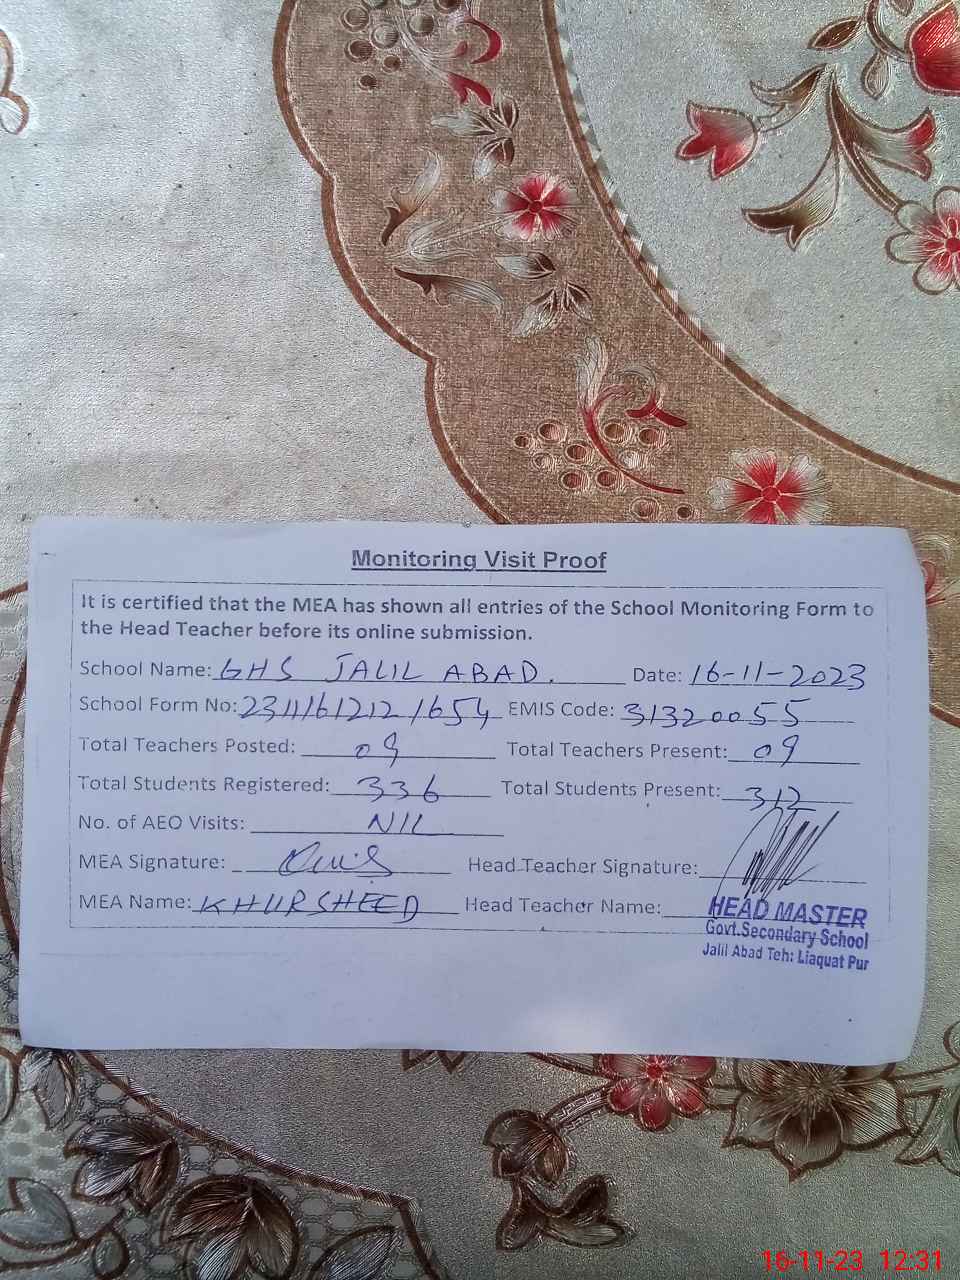 Monitoring Visit Proof
It is certified that the MEA has shown all entries of the School Monitoring Form to
the Head Teacher before its online submission.
School Name: GHS JALIL ABAD. Date: 16-11-2023
School Form No: EMIS Code: 31320055
Total Teachers Posted: 09 Total Teachers Present: 09
Total Students Registered: 336 Total Students Present: 312
No. of AEO Visits: NIL
MEA Signature: Head Teacher Signature:
MEA Name: KHURSHEED Head Teacher Name:
HEAD MASTER
Govt.Secondary School
Jalil Abad Teh: Liaquat Pur
16-11-23 12:31